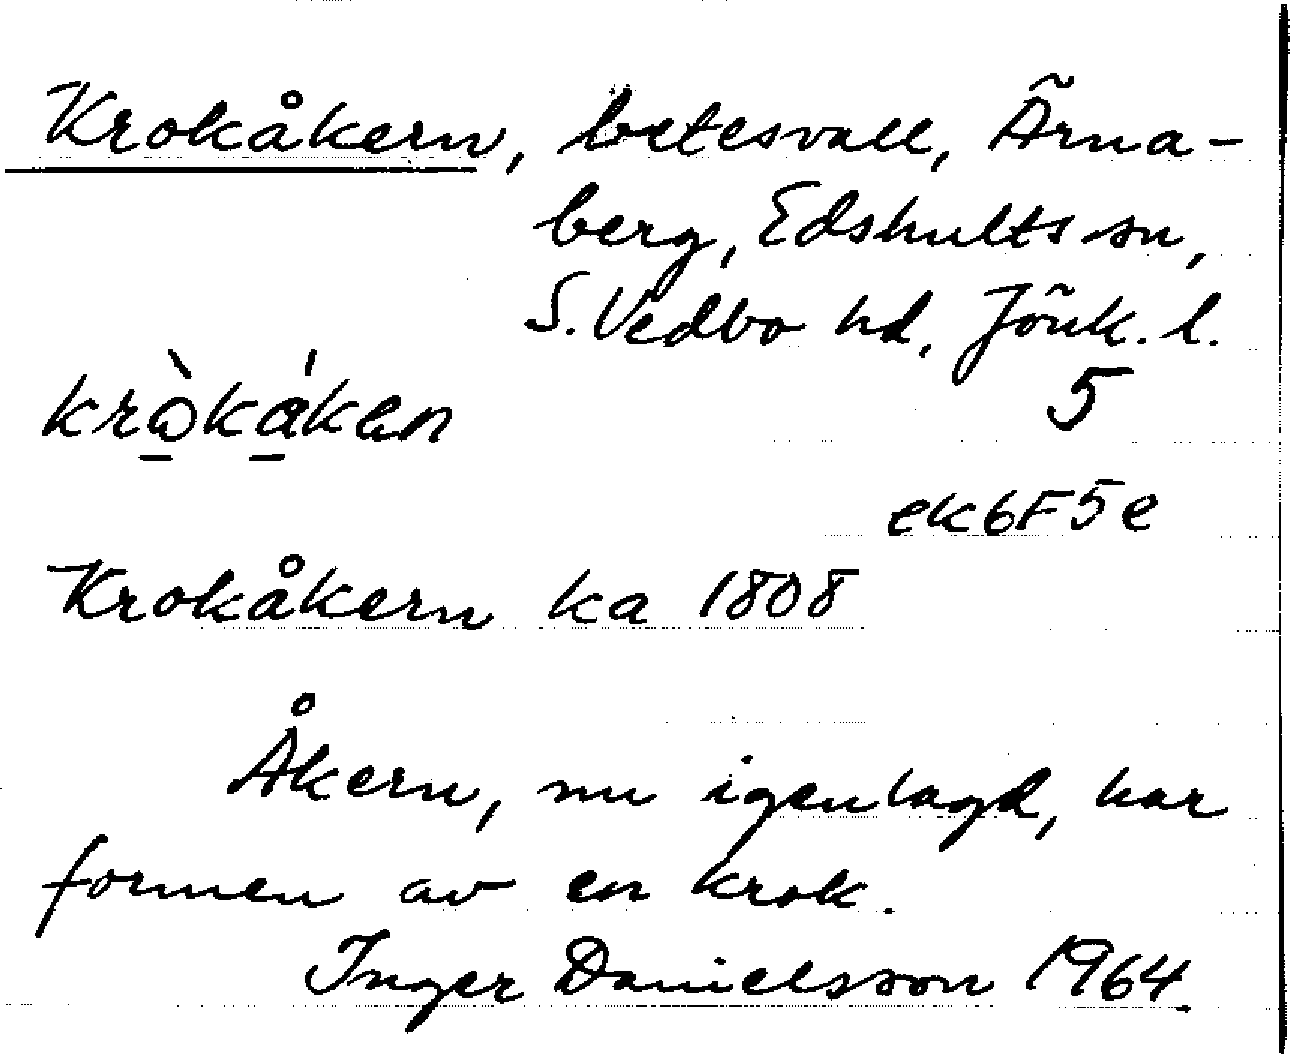 Krokåkern, betesvall, Ärna-
berg, Edshults sn,
S. Vedbo hd, Jönk. l.
5
ek6F5e
Krokåkern ka 1808
Åkern, nu igenlagd, har
formen av en krok.
Inger Danielsson 1964.